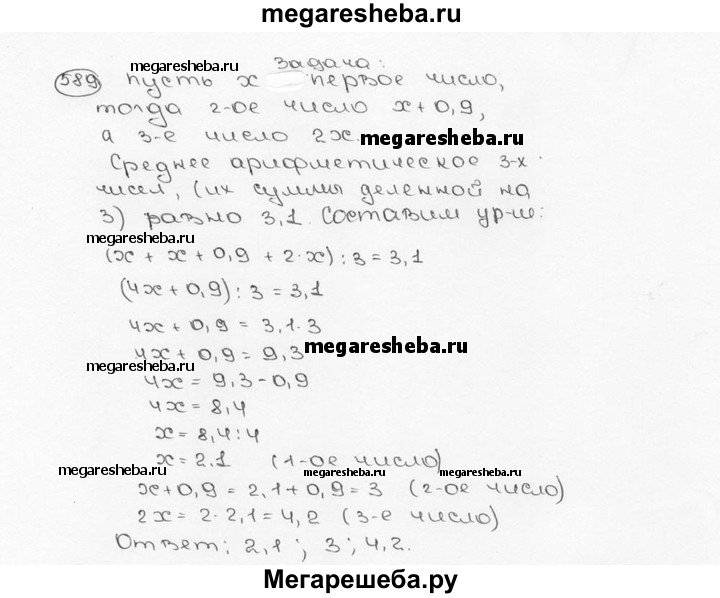 megaresheba.ru
megaresheba.ru Задача:
589 Пусть x первое число,
тогда 2-ое число x+0,9,
а 3-е число 2x. megaresheba.ru
Среднее арифметическое 3-х
чисел, (их суммы деленной на
3) равно 3,1. Составим ур-ие:
megaresheba.ru
(x + x + 0,9 + 2·x) : 3 = 3,1
(4x + 0,9) : 3 = 3,1
4x + 0,9 = 3,1·3
4x + 0,9 = 9,3 megaresheba.ru
megaresheba.ru
4x = 9,3 - 0,9
4x = 8,4
x = 8,4 : 4
x = 2.1 (1-ое число)
megaresheba.ru megaresheba.ru megaresheba.ru
x+0,9 = 2,1+0,9 = 3 (2-ое число)
2x = 2·2,1 = 4,2 (3-е число)
Ответ: 2,1 ; 3 ; 4,2.
Мегарешеба.ру